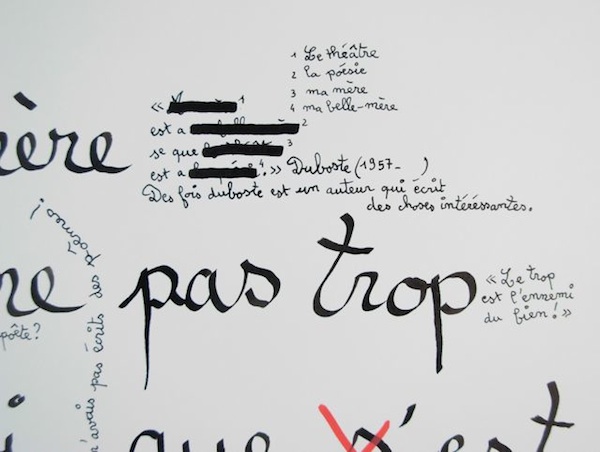 1 Le théâtre
2 la poésie
3 ma mère
4 ma belle-mère
« 1
est a 2
se que 3
est a 4.» Duboste (1957- )
Des fois duboste est un auteur qui écrit
des choses intéréssantes.
ère
re pas trop
« Le trop
est l'ennemi
du bien! »
poête?
n'avais pas écrits des
i que s'est